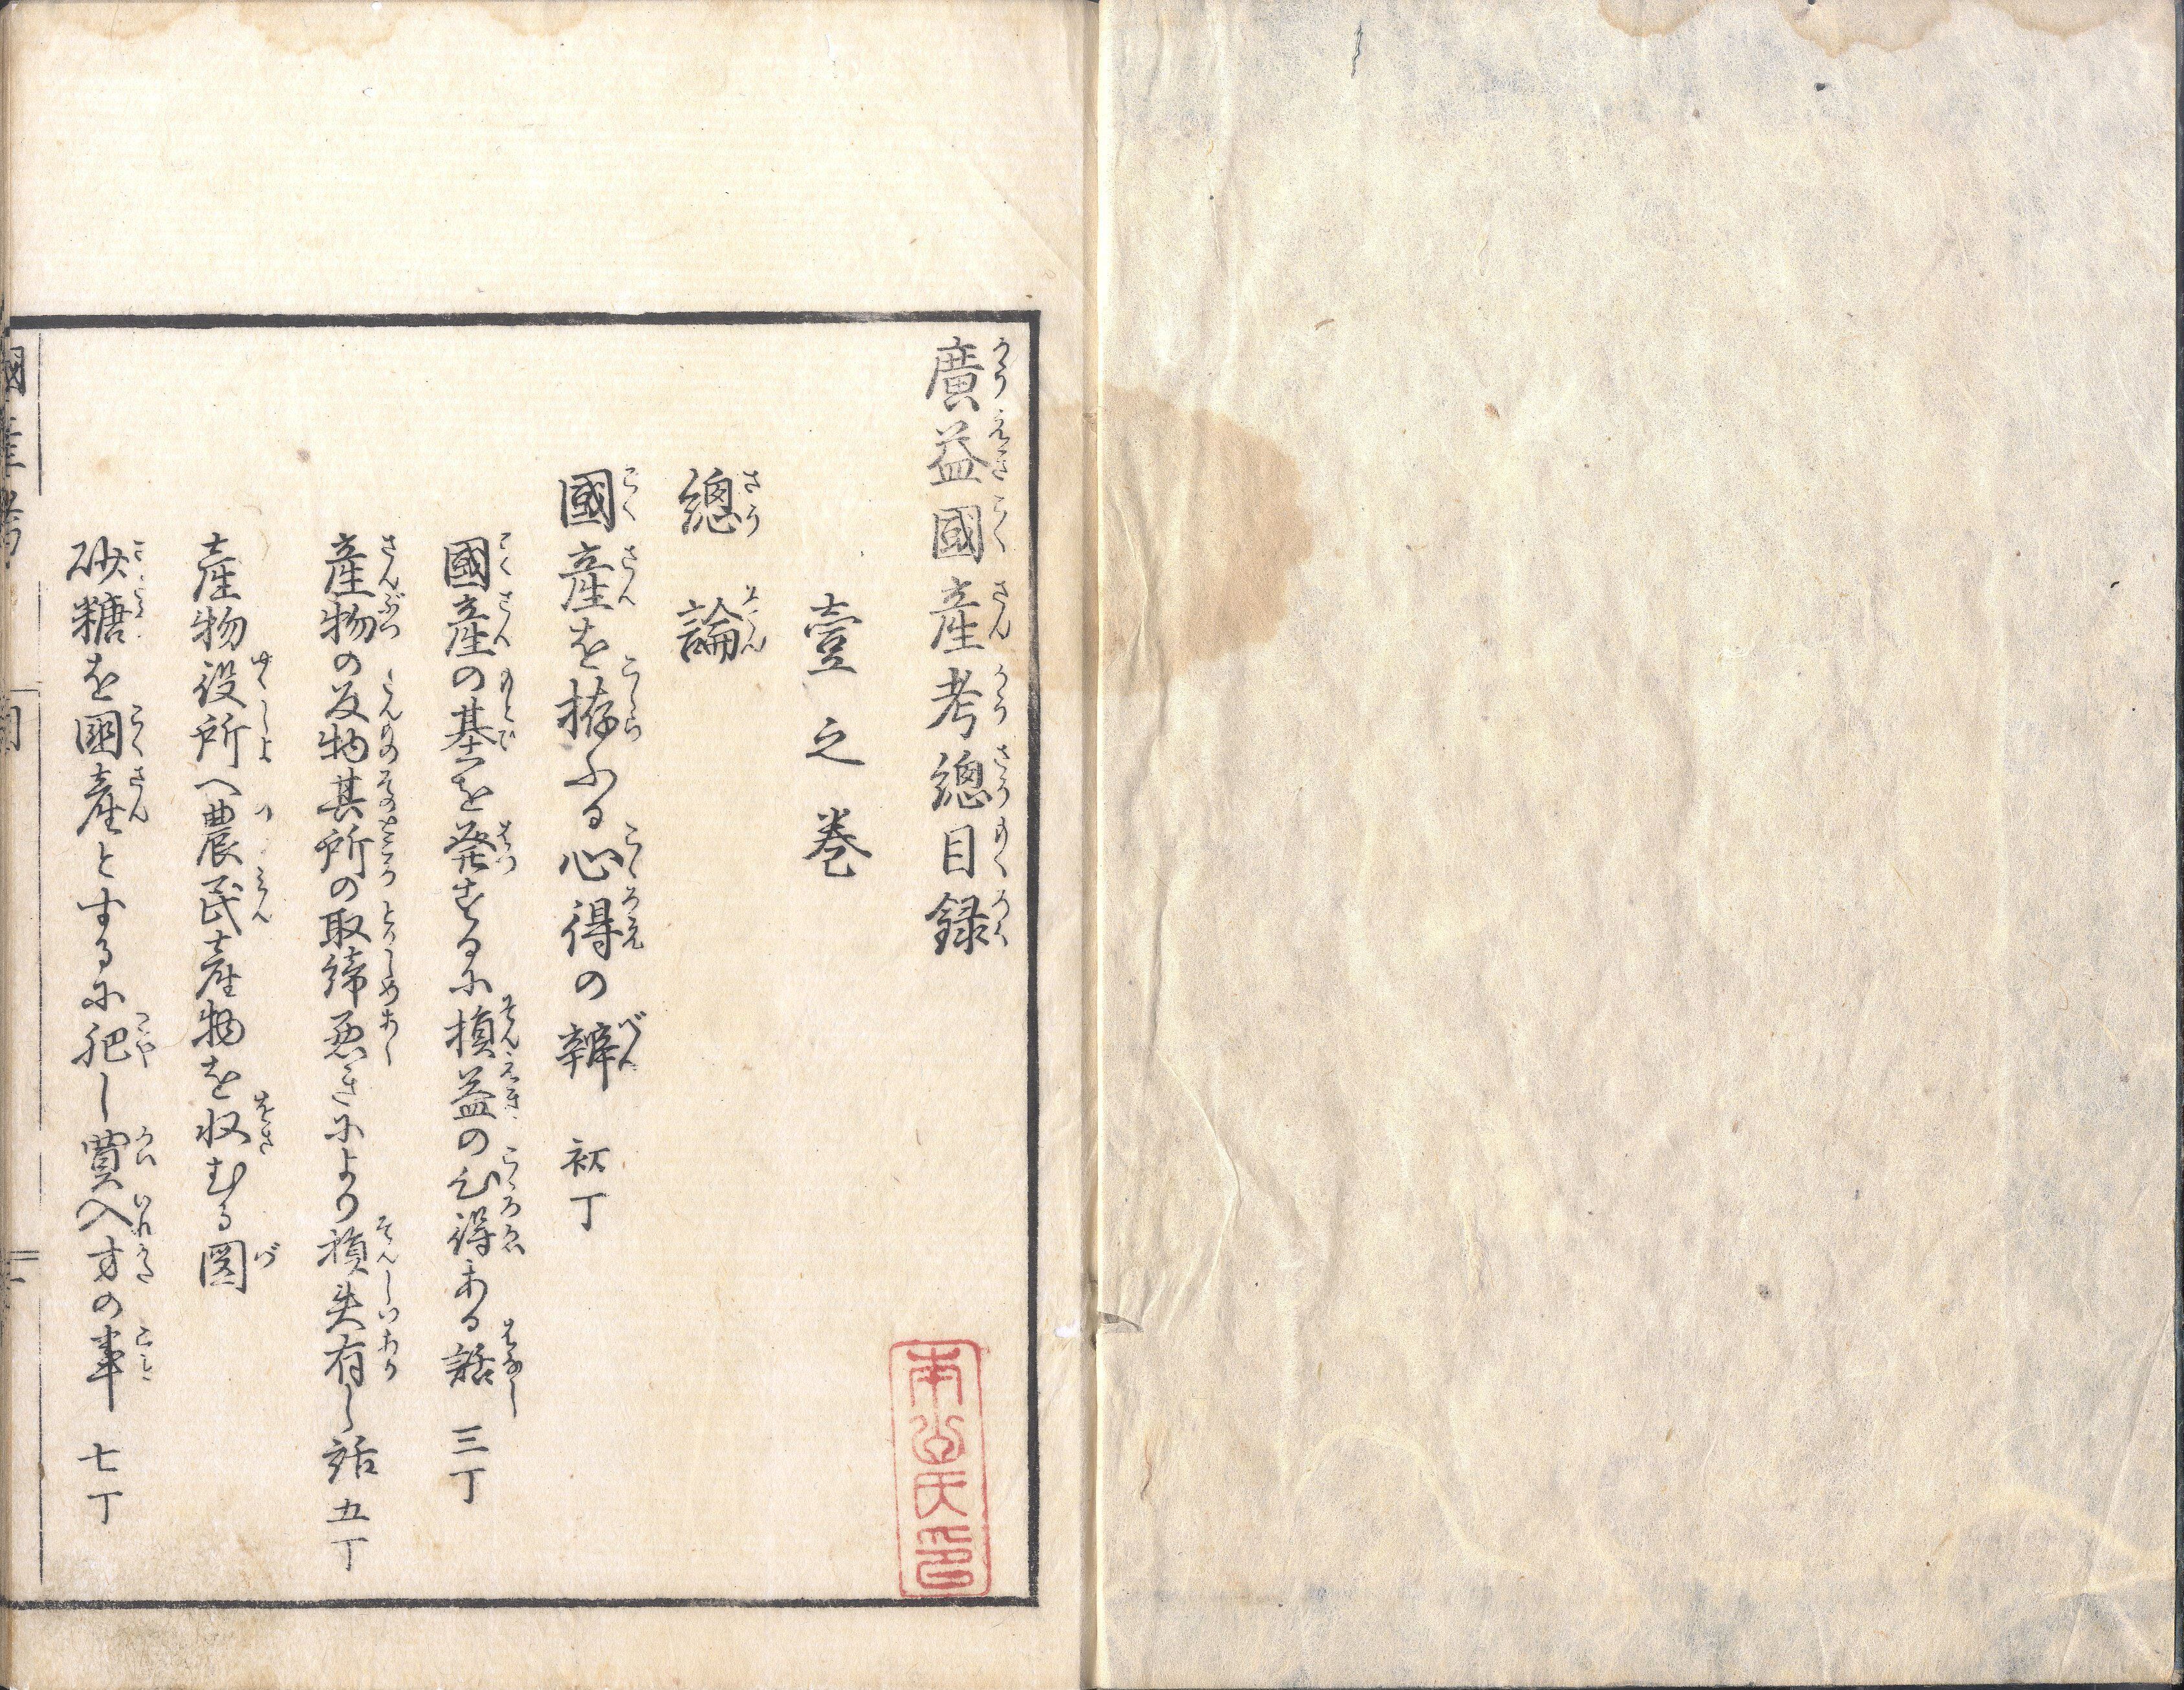 廣益國産考總目録
壹之巻
總論
國産を拵ふる心得の辨 初丁
國産の基を発するに損益の心得ある話 三丁
産物の反物其所の取締悪きにより損失有し話 五丁
産物役所へ農民産物を収むる図
砂糖を國産とするに肥し買入方の事 七丁